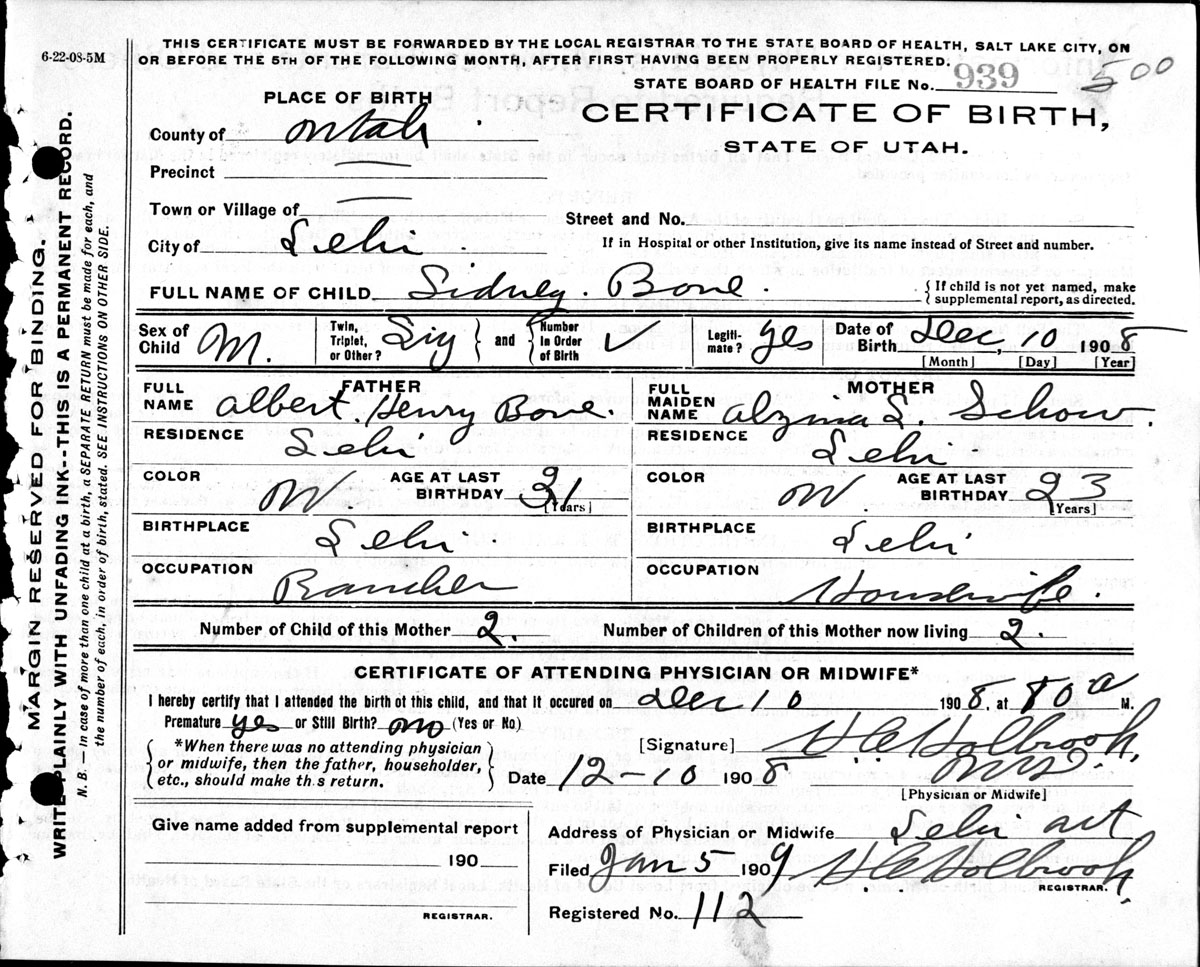 6-22-08-5M
THIS CERTIFICATE MUST BE FORWARDED BY THE LOCAL REGISTRAR TO THE STATE BOARD OF HEALTH, SALT LAKE CITY, ON
OR BEFORE THE 5TH OF THE FOLLOWING MONTH, AFTER FIRST HAVING BEEN PROPERLY REGISTERED.
STATE BOARD OF HEALTH FILE No. 939 500
PLACE OF BIRTH
CERTIFICATE OF BIRTH,
STATE OF UTAH.
County of Utah
Precinct
Town or Village of
Street and No.
City of Lehi
If in Hospital or other Institution, give its name instead of Street and number.
FULL NAME OF CHILD Sidney Bone. { If child is not yet named, make supplemental report, as directed.
Sex of Child M. Twin, Triplet, or Other? and Number in Order of Birth Legitimate? yes Date of Birth Dec, 10 1908
[Month] [Day] [Year]
FATHER MOTHER
FULL NAME Albert Henry Bone. FULL MAIDEN NAME Alzina L. Schow.
RESIDENCE Lehi RESIDENCE Lehi
COLOR W. AGE AT LAST BIRTHDAY 31 [Years] COLOR W. AGE AT LAST BIRTHDAY 23 [Years]
BIRTHPLACE Lehi BIRTHPLACE Lehi
OCCUPATION Rancher OCCUPATION Housewife.
Number of Child of this Mother 2. Number of Children of this Mother now living 2.
CERTIFICATE OF ATTENDING PHYSICIAN OR MIDWIFE*
I hereby certify that I attended the birth of this child, and that it occured on Dec 10 1908, at a M.
Premature yes or Still Birth? no (Yes or No)
*When there was no attending physician
or midwife, then the father, householder,
etc., should make this return.
[Signature] H.C. Holbrook, M.D.
Date 12-10 1908
[Physician or Midwife]
Give name added from supplemental report
190
REGISTRAR.
Address of Physician or Midwife Lehi Ut
Filed Jan 5 1909 H C Holbrook,
REGISTRAR.
Registered No. 112
MARGIN RESERVED FOR BINDING.
WRITE PLAINLY WITH UNFADING INK--THIS IS A PERMANENT RECORD.
N. B.—In case of more than one child at a birth, a SEPARATE RETURN must be made for each, and
the number of each, in order of birth, stated. SEE INSTRUCTIONS ON OTHER SIDE.